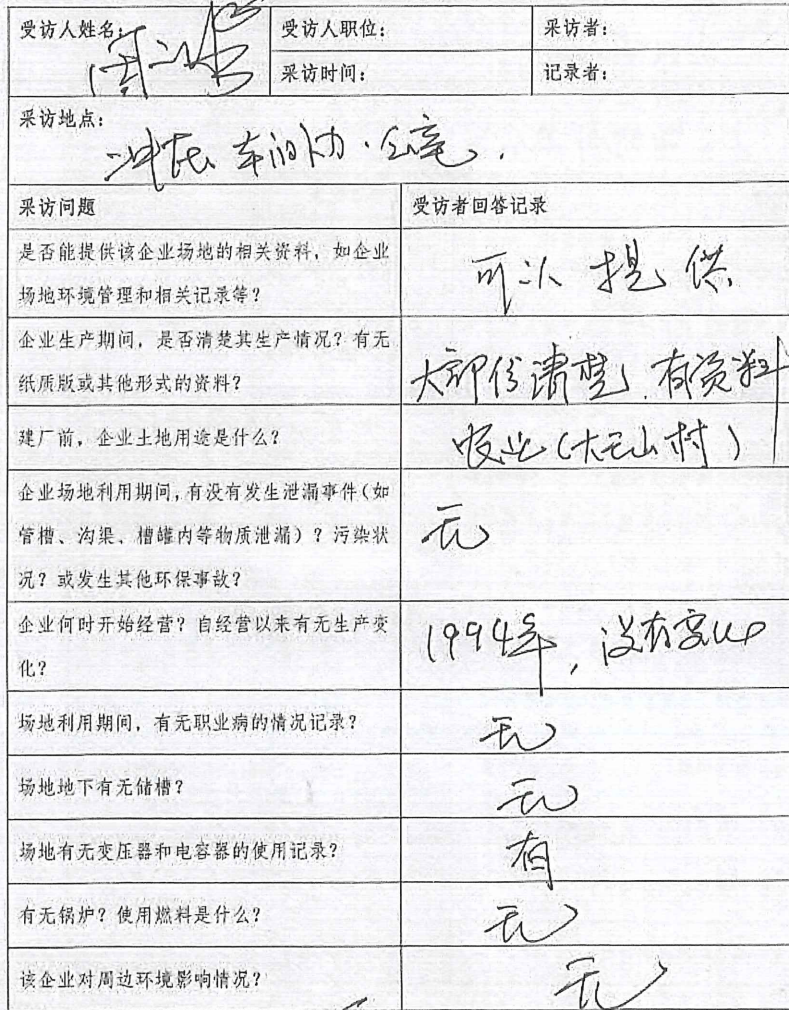 受访人姓名: 受访人职位: 采访者:
采访时间: 记录者:
采访地点:
冲床车间办公室.
采访问题 受访者回答记录
是否能提供该企业场地的相关资料，如企业
场地环境管理和相关记录等？
可以提供
企业生产期间，是否清楚其生产情况？有无
纸质版或其他形式的资料？
大部份清楚.有资料
建厂前，企业土地用途是什么？
农业(大云山村)
企业场地利用期间,有没有发生泄漏事件(如
管槽、沟渠、槽罐内等物质泄漏)？污染状
况？或发生其他环保事故？
无
企业何时开始经营？自经营以来有无生产变
化？
1994年，没有变化
场地利用期间，有无职业病的情况记录？
无
场地地下有无储槽？
无
场地有无变压器和电容器的使用记录？
有
有无锅炉？使用燃料是什么？
无
该企业对周边环境影响情况？
无